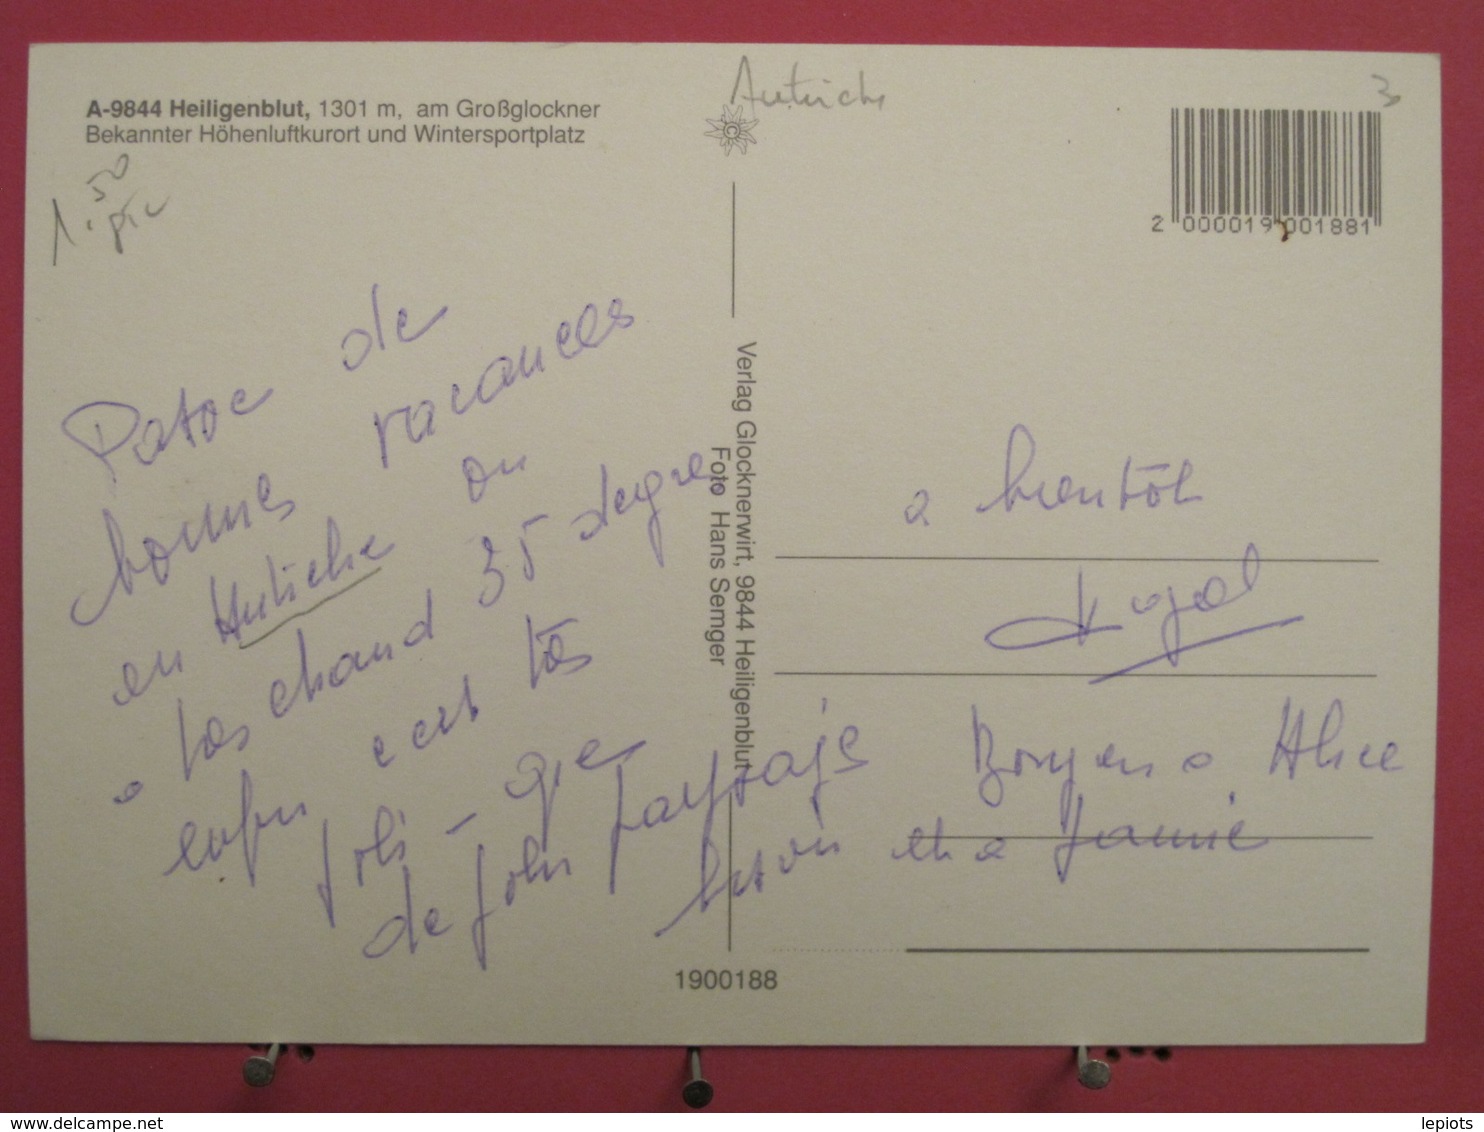 A-9844 Heiligenblut, 1301 m, am Großglockner
Bekannter Höhenluftkurort und Wintersportplatz
Autriche
3
1.50
pic
2 000019 001881
de
bonnes vacances
en Autriche on
a chaud 35 degres
enfin c est tès
joli -
de jolis paysaje
Verlag Glocknerwirt, 9844 Heiligenblut
Foto Hans Semger
a bientôt
Bonjour a Alice
et a Jannie
1900188
www.delcampe.net
lepiots